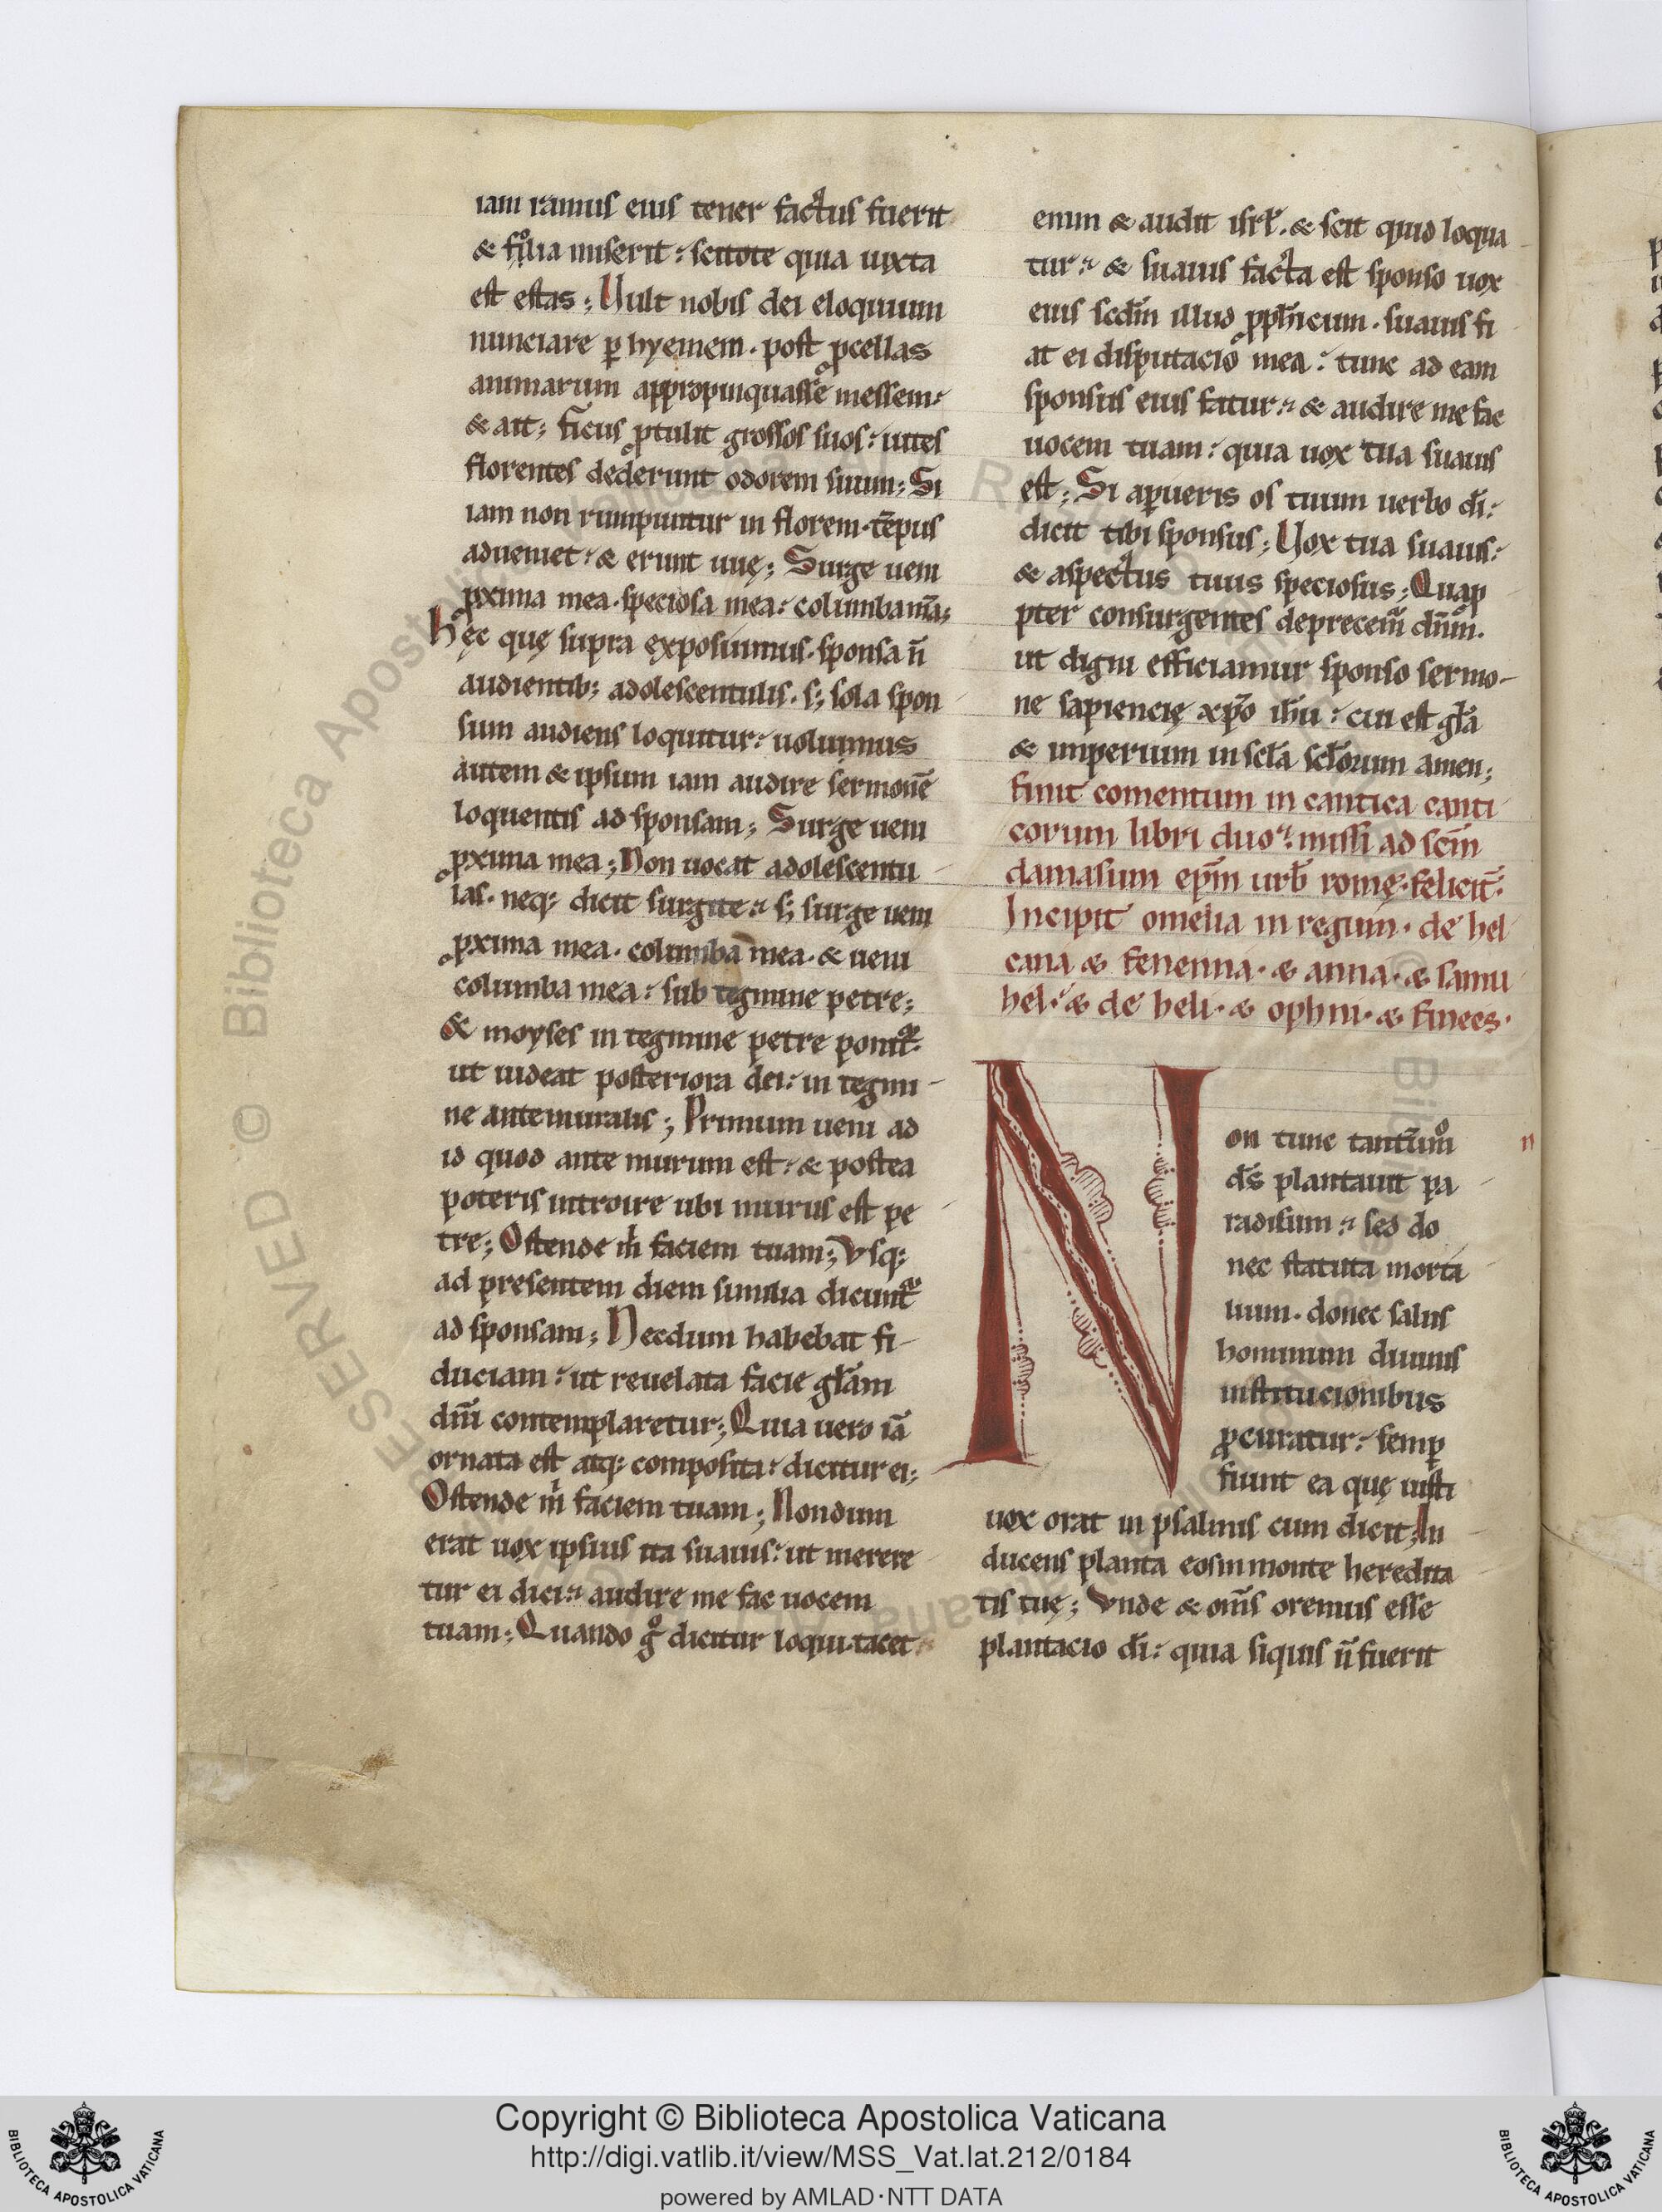 iam ramus eius tener factus fuerit
& folia miserit : scitote quia iuxta
est estas ; Uult nobis dei eloquium
nunciare ꝑ hyemem · post ꝓcellas
animarum appropinquasse messem :
& ait ; ficus ꝓtulit grossos suos : uites
florentes dederunt odorem suum ; Si
iam non rumpuntur in florem · tēpus
adueniet : & erunt uuę ; Surge ueni
ꝓxima mea · speciosa mea : columba m̄a ;
hęc quę supra exposuimus · sponsa n̄
audientib; adolescentulis · s; sola spon
sum audiens loquitur : uolumus
autem & ipsum iam audire sermonē
loquentis ad sponsam ; Surge ueni
ꝓxima mea ; Non uocat adolescentu
las · neq; dicit surgite : s; surge ueni
ꝓxima mea · columba mea · & ueni
columba mea : sub tegmine petre ;
& moyses in tegmine petre ponit᷑ ·
ut uideat posteriora dei : in tegmi-
ne antemuralis ; Primum ueni ad
id quod ante murum est : & postea
poteris introire ubi murus est pe
tre ; Ostende m̄ faciem tuam ; Usq;
ad presentem diem similia dicunt᷑
ad sponsam ; Necdum habebat fi-
duciam : ut reuelata facie gl̄am
dn̄i contemplaretur ; Quia uero iā
ornata est atq; composita : dicitur ei ;
Ostende m̄ faciem tuam ; Nondum
erat uox ipsius ita suauis : ut merere
tur ei dici : audire me fac uocem
tuam ; Quando gͦ dicitur loqui · tacet
enim & audit isrł · & scit quid loqua
tur : & suauis facta est sponso uox
eius scd̄m illud ꝓph̄icum · suauis fi
at ei disputacio mea : tunc ad eam
sponsus eius fatur : & audire me fac
uocem tuam : quia uox tua suauis
est ; Si aꝑueris os tuum uerbo dī :
dicit tibi sponsus ; Uox tua suauis :
& aspectus tuus speciosus ; Quaꝓ
pter consurgentes deprecem᷑ dn̄m ·
ut digni efficiamur sponso sermo-
ne sapiencię xp̄o ih̄u : cui est gl̄a
& imperium in scl̄a scl̄orum amen ;
finit comentum in cantica canti
corum libri duo : missi ad sc̄m
damasum ep̄m urb̄ romę · felicit᷑ ·
Incipit omelia in regum · de hel
cana & fenenna · & anna · & samu
hel · & de heli · & ophni · & finees ·
Non tunc tantum°
n
d̄s plantauit pa
radisum : sed do
nec statuta morta
lium · donec salus
hominum diuinis
institucionibus
ꝓcuratur : semꝑ
fiunt ea quę iusti
uox orat in psalmis cum dicit ; In
ducens planta eos in monte heredita
tis tuę ; Unde & om̄s oremus esse
plantacio dī : quia siquis n̄ fuerit
Copyright © Biblioteca Apostolica Vaticana
http://digi.vatlib.it/view/MSS_Vat.lat.212/0184
powered by AMLAD·NTT DATA
BIBLIOTECA APOSTOLICA VATICANA
BIBLIOTECA APOSTOLICA VATICANA